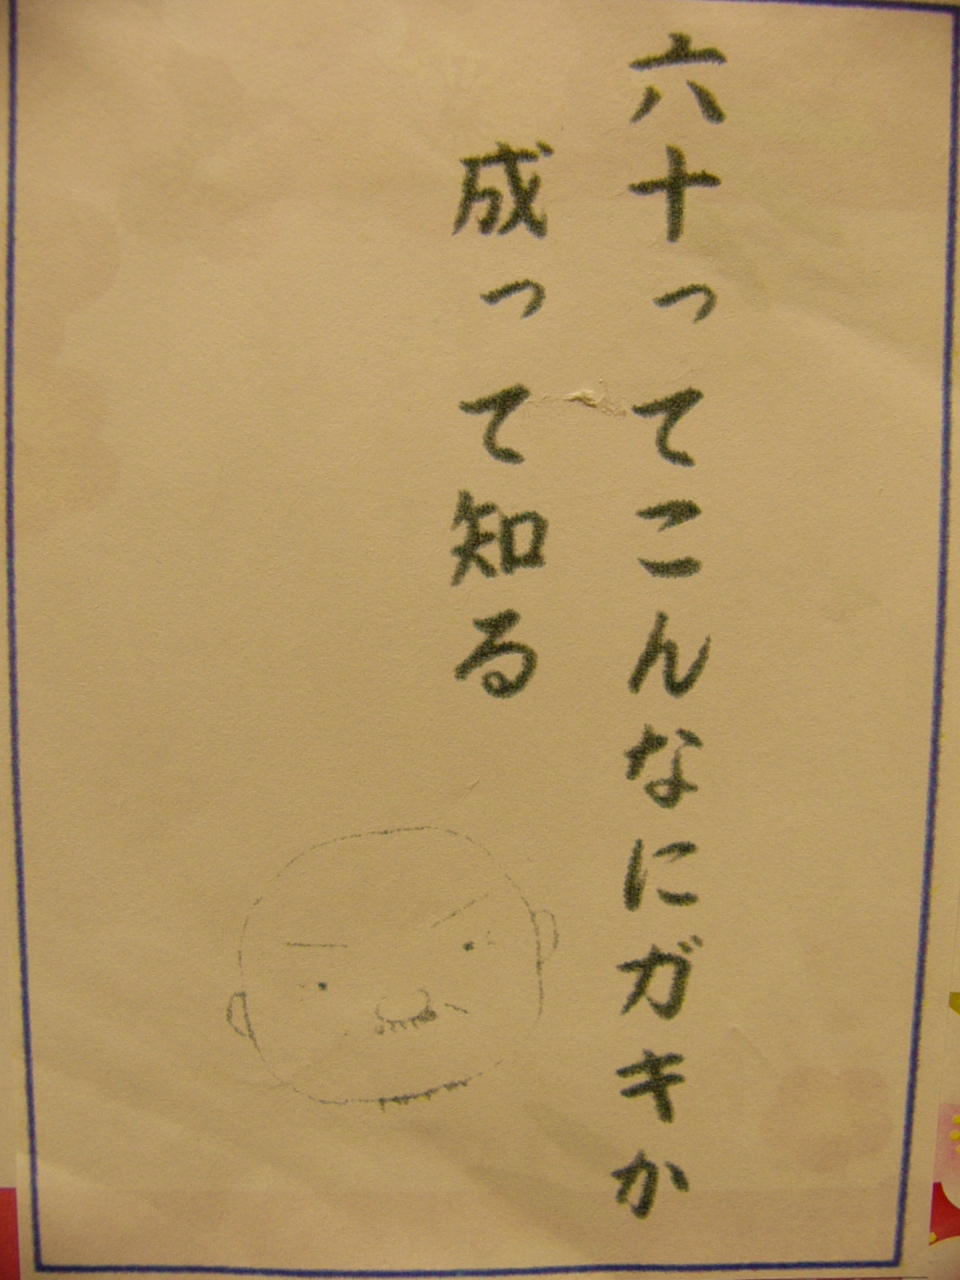 六十ってこんなにガキか
成って知る